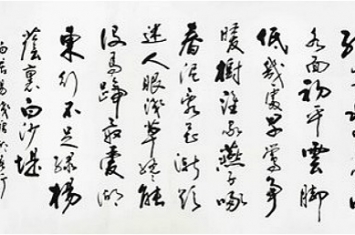 水面初平雲脚
低幾處早鶯争
暖樹誰家燕子啄
春泥亂花漸欲
迷人眼浅草纔能
没馬蹄最愛湖
東行不足緑楊
蔭裏白沙堤
白居易